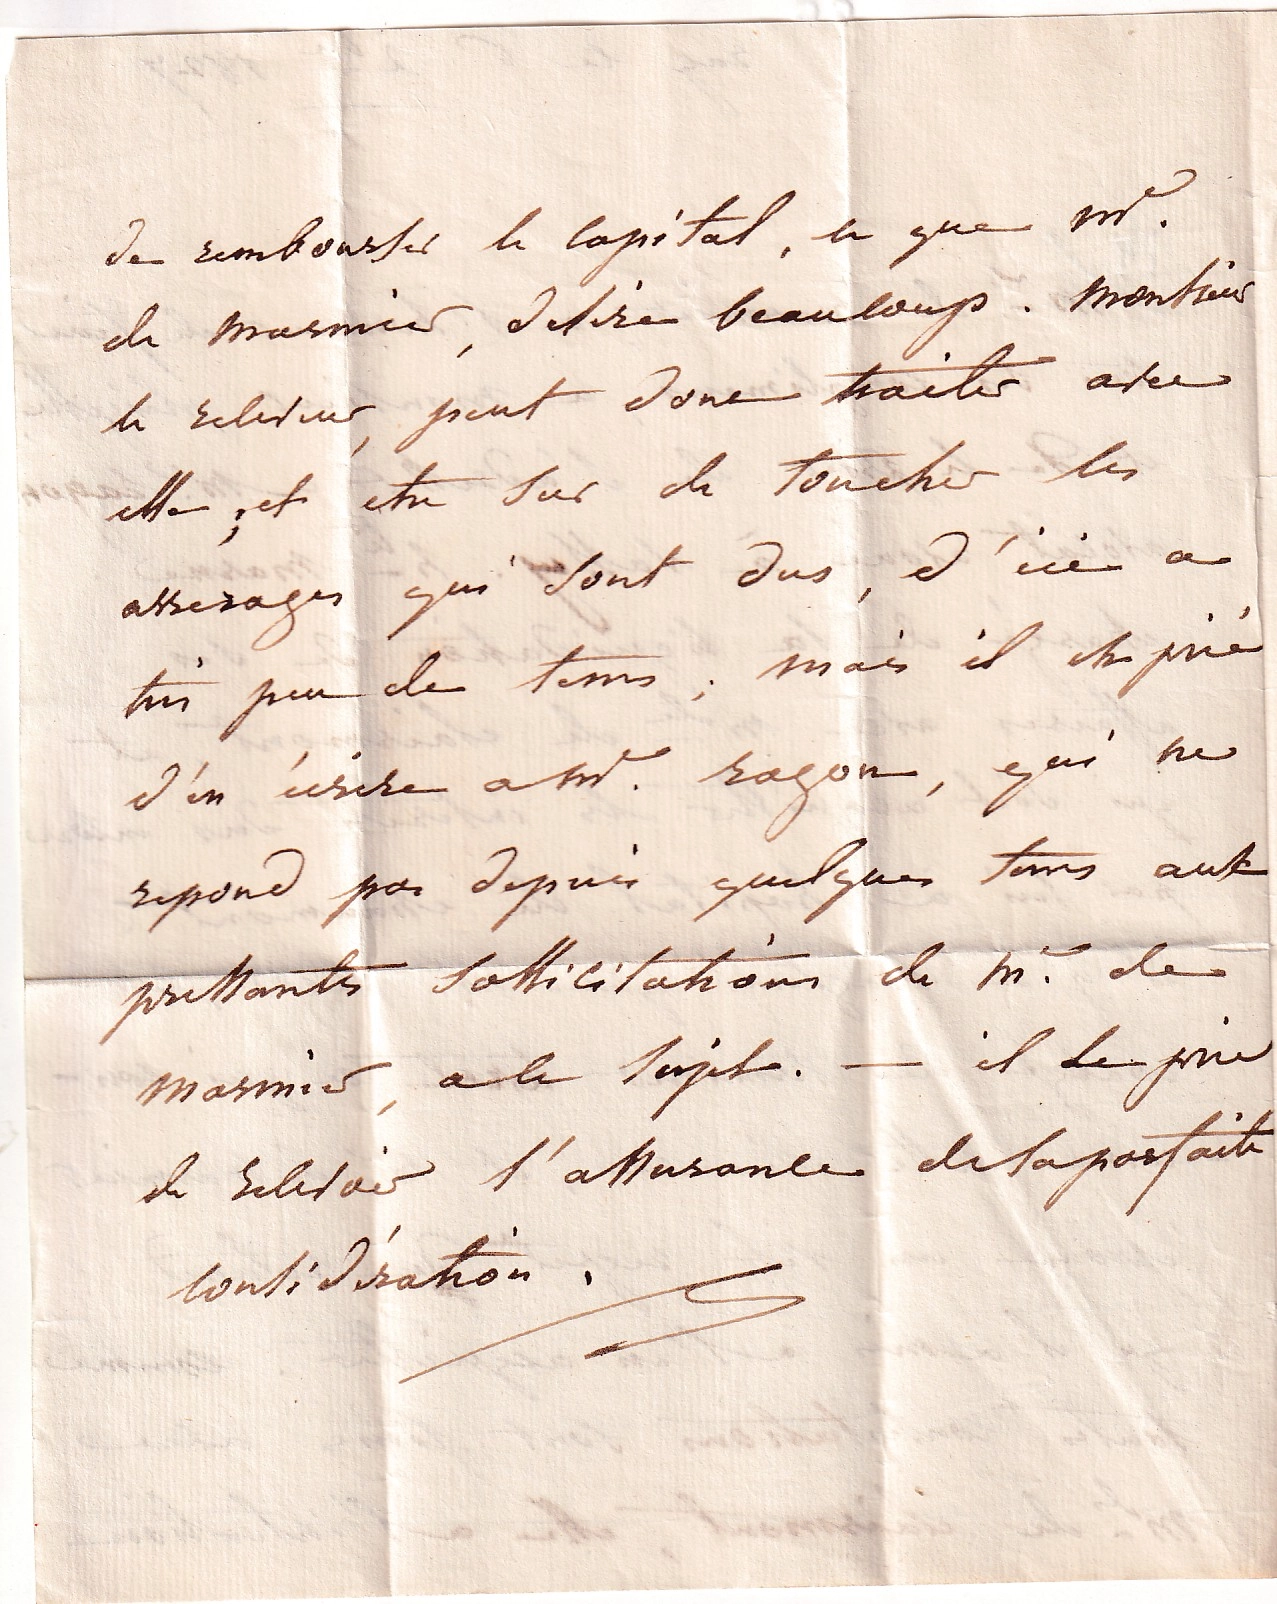 de rembourser le capital, ce que Mr.
de marmier, desire beaucoup. Monsieur
le receveur, peut donc traiter avec
elle, et etre sur de toucher les
arrerages qui sont dus, d'ici a
très peu de tems; mais il est prié
d'en écrire a Mr. ragon, qui ne
repond pas depuis quelques tems aux
pressantes sollicitations de Mr. de
marmier, a ce sujet. — il le prie
de recevoir l'assurance de sa parfaite
considération.